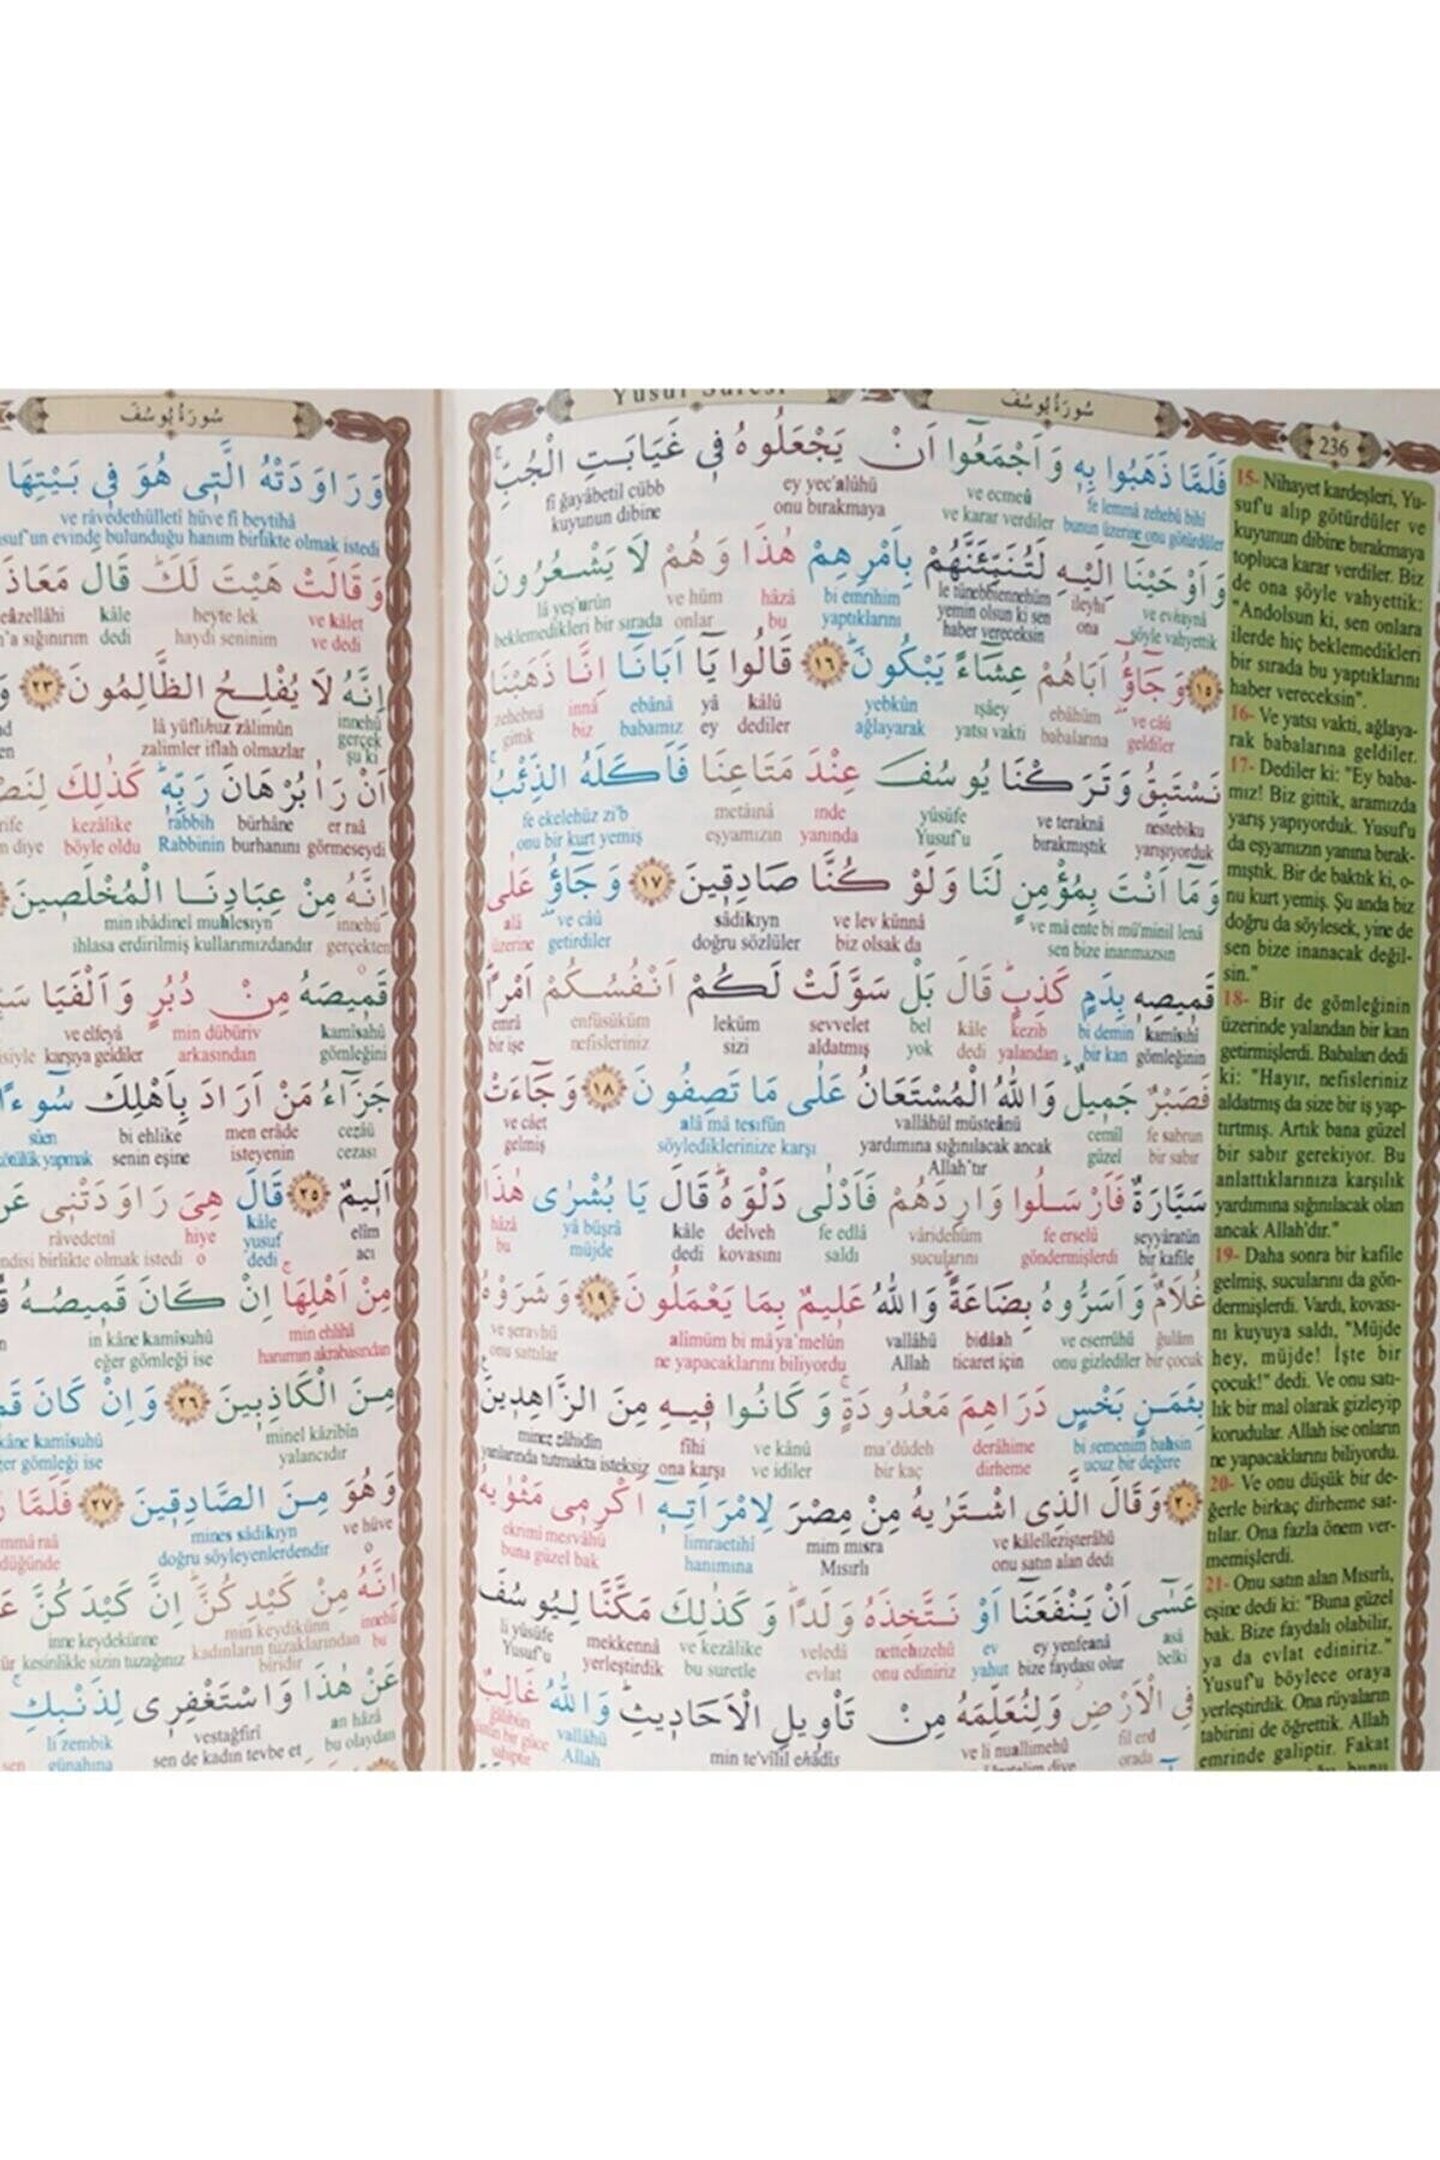 Yusuf Suresi
سُورَةُ يُوسُفَ
236
فَلَمَّا ذَهَبُوا بِهِ وَاَجْمَعُٓوا اَنْ يَجْعَلُوهُ فٖي غَيَابَتِ الْجُبِّۚ
fe lemmâ zehebû bihî ve ecmeû ey yec'alûhü fî ğayâbetil cübb
bunun üzerine onu götürdüler ve karar verdiler onu bırakmaya kuyunun dibine
وَاَوْحَيْنَٓا اِلَيْهِ لَتُنَبِّئَنَّهُمْ بِاَمْرِهِمْ هٰذَا وَهُمْ لَا يَشْعُرُونَ
ve evhaynâ ileyhi le tünebbiennehüm bi emrihim hâzâ ve hüm lâ yeş'urûn
şöyle vahyettik ona yemin olsun ki sen haber vereceksin yaptıklarını bu onlar beklemedikleri bir sırada
﴿١٥﴾ وَجَٓاؤُٓ اَبَاهُمْ عِشَٓاءً يَبْكُونَؕ ﴿١٦﴾ قَالُوا يَٓا اَبَانَٓا اِنَّا ذَهَبْنَا
ve câû ebâhüm ışâey yebkûn kâlû yâ ebânâ innâ zehebnâ
geldiler babalarına yatsı vakti ağlayarak dediler ey babamız biz gittik
نَسْتَبِقُ وَتَرَكْنَا يُوسُفَ عِنْدَ مَتَاعِنَا فَاَكَلَهُ الذِّئْبُۚ
nestebiku ve teraknâ yûsüfe ınde metâınâ fe ekelehüz zi'b
yarışıyorduk bırakmıştık Yusuf'u yanında eşyamızın onu bir kurt yemiş
وَمَٓا اَنْتَ بِمُؤْمِنٍ لَنَا وَلَوْ كُنَّا صَادِقٖينَ ﴿١٧﴾ وَجَٓاؤُٓ عَلٰى
ve mâ ente bi mü'minil lenâ ve lev künnâ sâdikıyn ve câû alâ
sen bize inanmazsın biz olsak da doğru sözlüler getirdiler üzerine
قَمٖيصِهٖ بِدَمٍ كَذِبٍؕ قَالَ بَلْ سَوَّلَتْ لَكُمْ اَنْفُسُكُمْ اَمْرًاؕ
kamîsıhî bi demin kezib kâle bel sevvelet leküm enfüsüküm emrâ
gömleğinin bir kan yalandan dedi yok aldatmış sizi nefisleriniz bir işe
فَصَبْرٌ جَمٖيلٌؕ وَاللّٰهُ الْمُسْتَعَانُ عَلٰى مَا تَصِفُونَ ﴿١٨﴾ وَجَٓاءَتْ
fe sabrun cemîl vallâhül müsteânü alâ mâ tesıfûn ve câet
bir sabır güzel yardımına sığınılacak ancak Allah'tır söylediklerinize karşı gelmiş
سَيَّارَةٌ فَاَرْسَلُوا وَارِدَهُمْ فَاَدْلٰى دَلْوَهُؕ قَالَ يَا بُشْرٰى هٰذَا
seyyâratün fe erselû vâridehüm fe edlâ delveh kâle yâ büşrâ hâzâ
bir kafile göndermişlerdi sucularını saldı kovasını dedi müjde bu
غُلَامٌؕ وَاَسَرُّوهُ بِضَاعَةًؕ وَاللّٰهُ عَلٖيمٌ بِمَا يَعْمَلُونَ ﴿١٩﴾ وَشَرَوْهُ
ğulâm ve eserrûhü bidâah vallâhü alîmüm bi mâ ya'melûn ve şeravhü
bir çocuk onu gizlediler ticaret için Allah ne yapacaklarını biliyordu onu sattılar
بِثَمَنٍ بَخْسٍ دَرَاهِمَ مَعْدُودَةٍۚ وَكَانُوا فٖيهِ مِنَ الزَّاهِدٖينَ
bi semenim bahsin derâhime ma'dûdeh ve kânû fîhi minez zâhidîn
ucuz bir değere dirheme bir kaç ve idiler ona karşı yanlarında tutmakta isteksiz
﴿٢٠﴾ وَقَالَ الَّذٖي اشْتَرٰيهُ مِنْ مِصْرَ لِامْرَاَتِهٖٓ اَكْرِمٖي مَثْوٰيهُ
ve kâlellezişterâhü mim mısra limraetihî ekrimî mesvâhü
onu satın alan dedi Mısırlı hanımına buna güzel bak
عَسٰٓى اَنْ يَنْفَعَنَٓا اَوْ نَتَّخِذَهُ وَلَدًاؕ وَكَذٰلِكَ مَكَّنَّا لِيُوسُفَ
asâ ey yenfeanâ ev nettehızehû veledâ ve kezâlike mekkennâ li yûsüfe
belki bize faydası olur yahut onu ediniriz evlat bu suretle yerleştirdik Yusuf'u
فِي الْاَرْضِ وَلِنُعَلِّمَهُ مِنْ تَاْوٖيلِ الْاَحَادٖيثِؕ وَاللّٰهُ غَالِبٌ
fil erd ve li nuallimehû min te'vîlil ehâdîs vallâhü
orada Allah
15- Nihayet kardeşleri, Yu-
suf'u alıp götürdüler ve
kuyunun dibine bırakmaya
topluca karar verdiler. Biz
de ona şöyle vahyettik:
"Andolsun ki, sen onlara
ilerde hiç beklemedikleri
bir sırada bu yaptıklarını
haber vereceksin".
16- Ve yatsı vakti, ağlaya-
rak babalarına geldiler.
17- Dediler ki: "Ey baba-
mız! Biz gittik, aramızda
yarış yapıyorduk. Yusuf'u
da eşyamızın yanına bırak-
mıştık. Bir de baktık ki, o-
nu kurt yemiş. Şu anda biz
doğru da söylesek, yine de
sen bize inanacak değil-
sin."
18- Bir de gömleğinin
üzerinde yalandan bir kan
getirmişlerdi. Babaları dedi
ki: "Hayır, nefisleriniz
aldatmış da size bir iş yap-
tırtmış. Artık bana güzel
bir sabır gerekiyor. Bu
anlattıklarınıza karşılık
yardımına sığınılacak olan
ancak Allah'dır."
19- Daha sonra bir kafile
gelmiş, sucularını da gön-
dermişlerdi. Vardı, kovası-
nı kuyuya saldı, "Müjde
hey, müjde! İşte bir
çocuk!" dedi. Ve onu satı-
lık bir mal olarak gizleyip
korudular. Allah ise onların
ne yapacaklarını biliyordu.
20- Ve onu düşük bir de-
ğerle birkaç dirheme sat-
tılar. Ona fazla önem ver-
memişlerdi.
21- Onu satın alan Mısırlı,
eşine dedi ki: "Buna güzel
bak. Bize faydalı olabilir,
ya da evlat ediniriz."
Yusuf'u böylece oraya
yerleştirdik. Ona rüyaların
tabirini de öğrettik. Allah
emrinde galiptir. Fakat
سُورَةُ يُوسُفَ
وَرَاوَدَتْهُ الَّتٖي هُوَ فٖي بَيْتِهَا
ve râvedethülletî hüve fî beytihâ
evinde bulunduğu hanım birlikte olmak istedi
وَقَالَتْ هَيْتَ لَكَؕ قَالَ مَعَاذَ
ve kâlet heyte lek kâle
ve dedi haydi seninim dedi sığınırım
اِنَّهُ لَا يُفْلِحُ الظَّالِمُونَ ﴿٢٣﴾
innehû lâ yüflihuz zâlimûn
gerçek şu ki zalimler iflah olmazlar
اَنْ رَاٰ بُرْهَانَ رَبِّهٖؕ كَذٰلِكَ
er raâ bürhâne rabbih kezâlike
görmeseydi burhanını Rabbinin böyle oldu diye
اِنَّهُ مِنْ عِبَادِنَا الْمُخْلَصٖينَ
innehû min ıbâdinel muhlesıyn
gerçekten ihlasa erdirilmiş kullarımızdandır
قَمٖيصَهُ مِنْ دُبُرٍ وَاَلْفَيَا
kamîsahû min dübüriv ve elfeyâ
gömleğini arkasından karşıya geldiler
جَزَٓاءُ مَنْ اَرَادَ بِاَهْلِكَ سُٓوءًا
cezâü men erâde bi ehlike sûen
cezası isteyenin senin eşine kötülük yapmak
اَلٖيمٌ ﴿٢٥﴾ قَالَ هِيَ رَاوَدَتْنٖي
elîm kâle hiye râvedetnî
acı yusuf dedi o birlikte olmak istedi
مِنْ اَهْلِهَاۚ اِنْ كَانَ قَمٖيصُهُ
min ehlihâ in kâne kamîsuhû
hanımın akrabasından eğer gömleği ise
مِنَ الْكَاذِبٖينَ ﴿٢٦﴾ وَاِنْ كَانَ
minel kâzibîn kâne kamîsuhû
yalancıdır gömleği ise
وَهُوَ مِنَ الصَّادِقٖينَ ﴿٢٧﴾ فَلَمَّا
ve hüve mines sâdikıyn
o doğru söyleyenlerdendir
اِنَّهُ مِنْ كَيْدِكُنَّؕ اِنَّ كَيْدَكُنَّ
innehû min keydikünn inne keydekünne
bu kadınların tuzaklarından biridir kesinlikle sizin tuzağınız
عَنْ هٰذَا وَاسْتَغْفِرٖي لِذَنْبِكِۚ
an hâzâ vestağfirî li zembik
bu olaydan sen de kadın tevbe et günahına